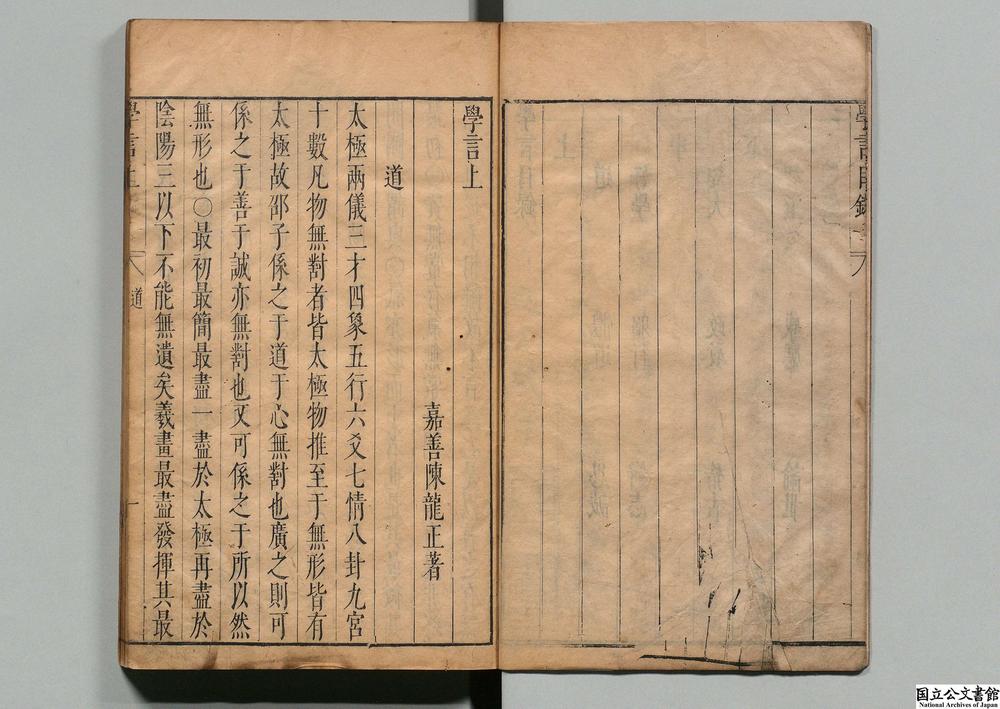 學言目錄
學言上
嘉善陳龍正著
道
太極兩儀三才四象五行六爻七情八卦九宮
十數凡物無對者皆太極物推至于無形皆有
太極故邵子係之于道于心無對也廣之則可
係之于善于誠亦無對也又可係之于所以然
無形也○最初最簡最盡一盡於太極再盡於
陰陽三以下不能無遺矣羲畫最盡發揮其最
學言上
道
一
国立公文書館
National Archives of Japan